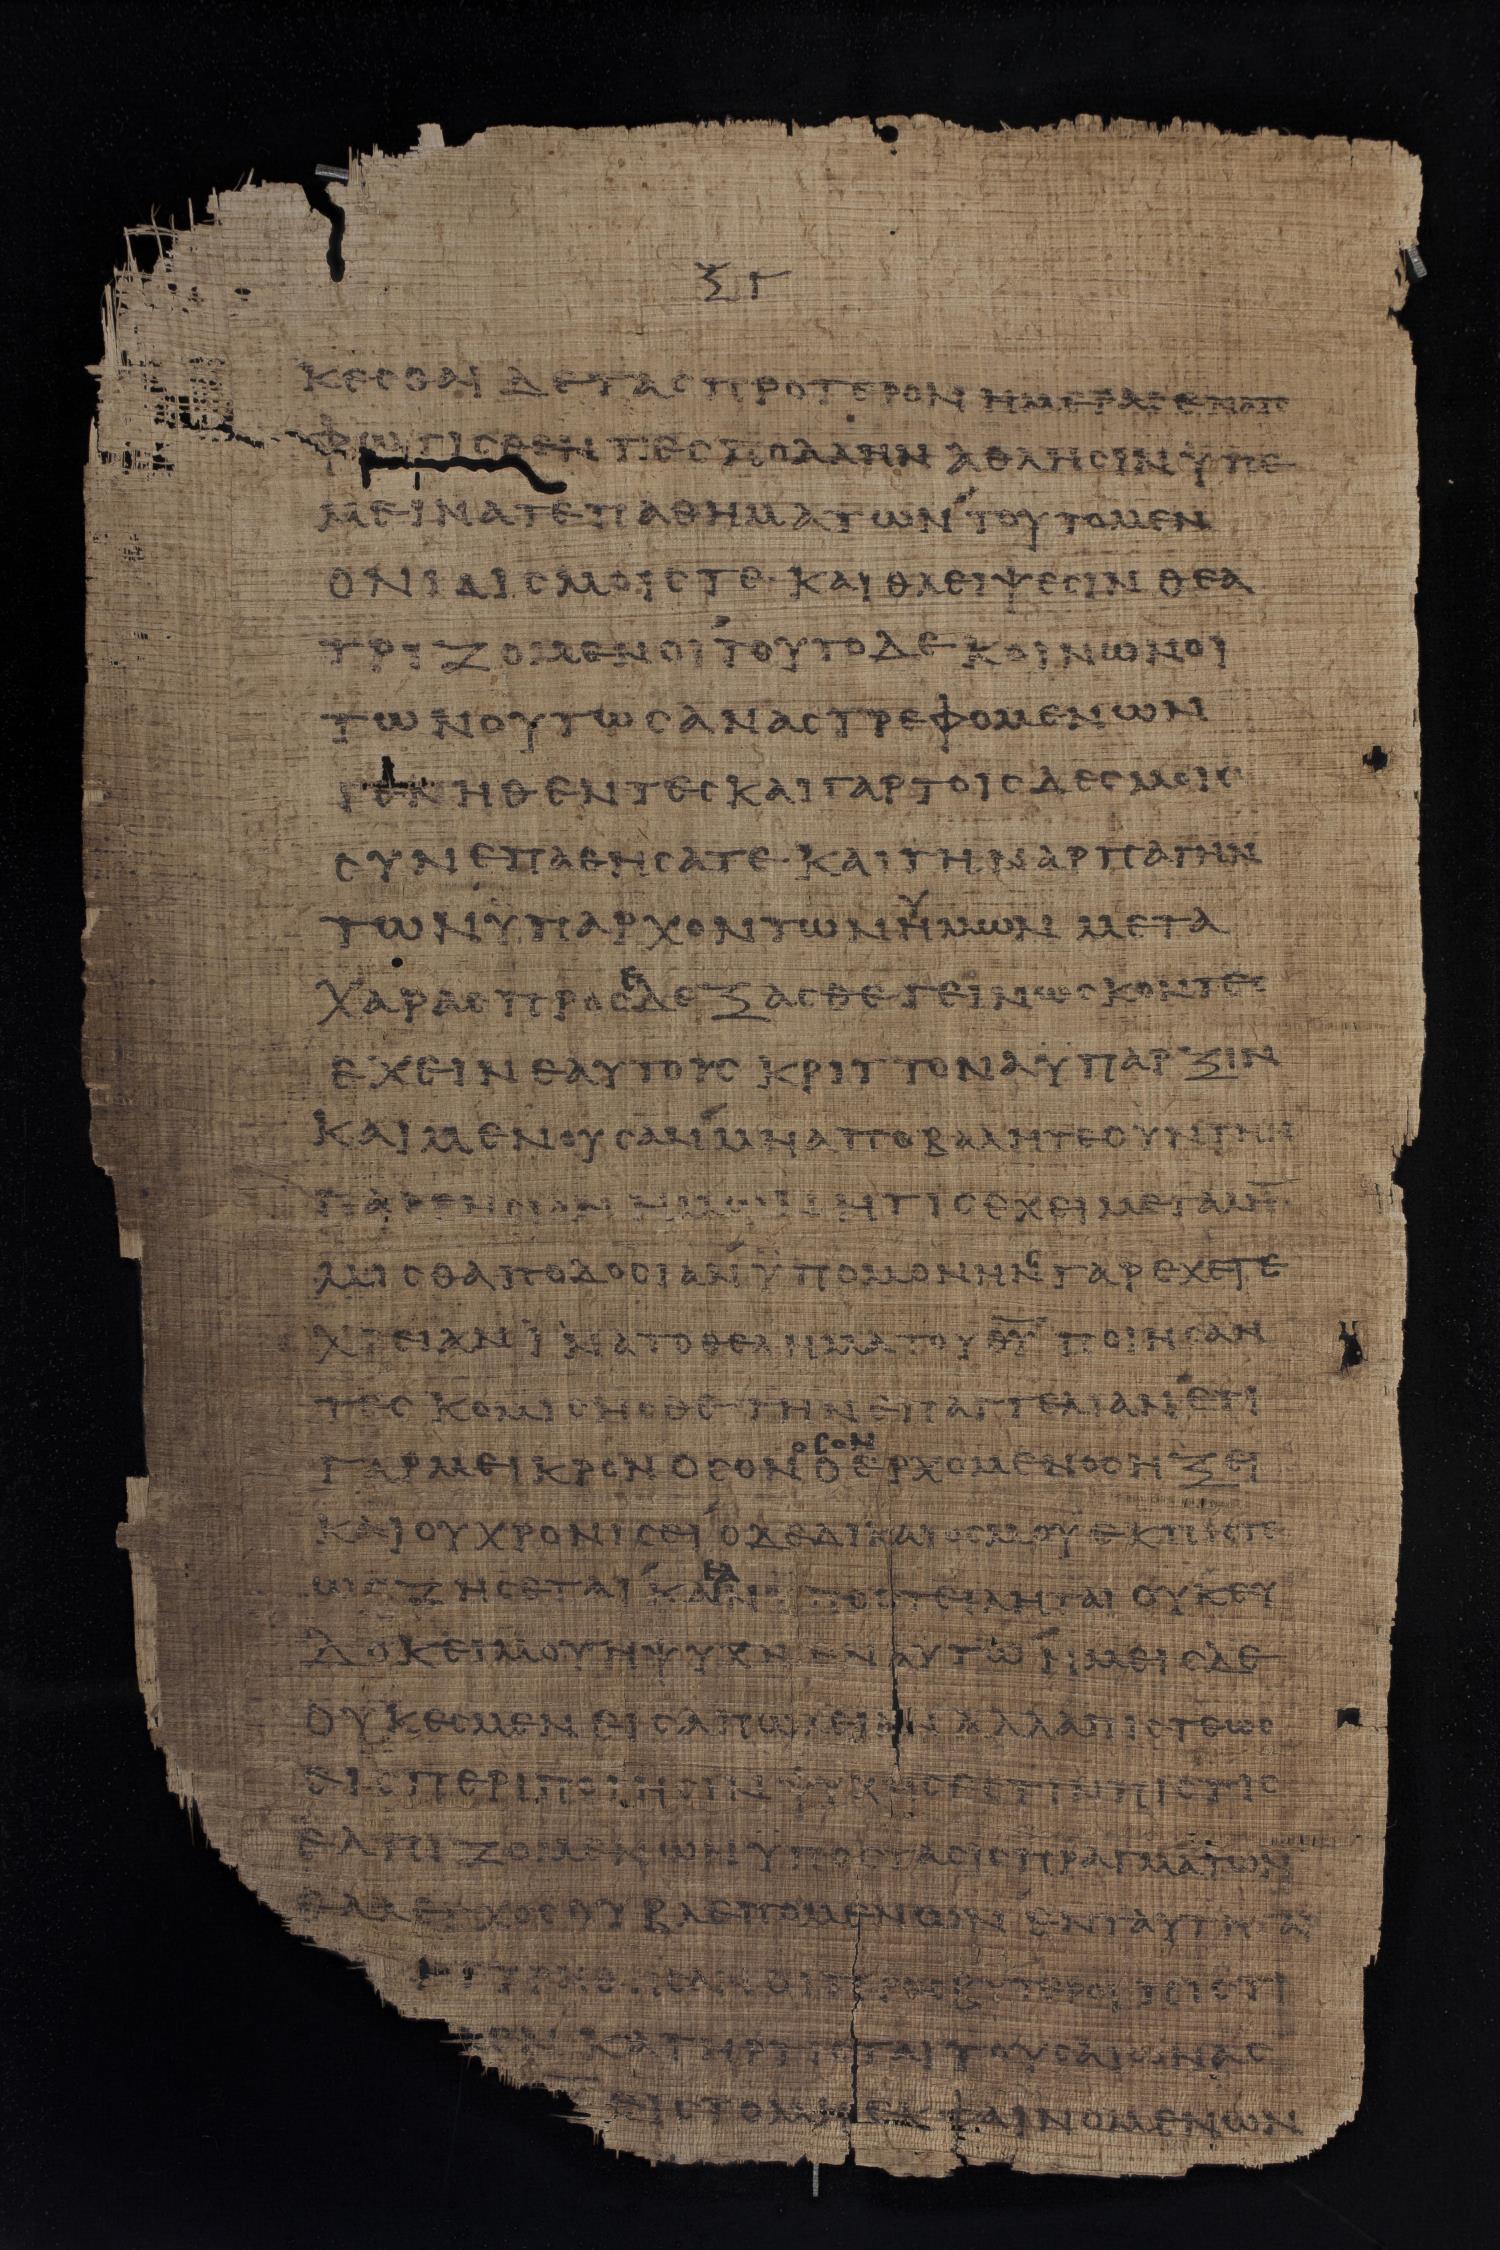 ΞΓ
ΚΕΣΘΑΙ ΔΕ ΤΑΣ ΠΡΟΤΕΡΟΝ ΗΜΕΡΑΣ ΕΝ ΑΙΣ
ΦΩΤΙΣΘΕΝΤΕΣ ΠΟΛΛΗΝ ΑΘΛΗΣΙΝ ΫΠΕ
ΜΕΙΝΑΤΕ ΠΑΘΗΜΑΤΩΝ ΤΟΥΤΟ ΜΕΝ
ΟΝΙΔΙΣΜΟΙΣ ΤΕ· ΚΑΙ ΘΛΕΙΨΕΣΙΝ ΘΕΑ
ΤΡΙΖΟΜΕΝΟΙ ΤΟΥΤΟ ΔΕ ΚΟΙΝΩΝΟΙ
ΤΩΝ ΟΥΤΩΣ ΑΝΑΣΤΡΕΦΟΜΕΝΩΝ
ΓΕΝΗΘΕΝΤΕΣ ΚΑΙ ΓΑΡ ΤΟΙΣ ΔΕΣΜΟΙΣ
ΣΥΝΕΠΑΘΗΣΑΤΕ· ΚΑΙ ΤΗΝ ΑΡΠΑΓΗΝ
ΤΩΝ ΫΠΑΡΧΟΝΤΩΝ ΫΗΜΩΝ ΜΕΤΑ
ΧΑΡΑΣ ΠΡΟΣΕΔΕΞΑΣΘΕ ΓΕΙΝΩΣΚΟΝΤΕΣ
ΕΧΕΙΝ ΕΑΥΤΟΥΣ ΚΡΙΤΤΟΝΑ ΫΠΑΡΞΙΝ
ΚΑΙ ΜΕΝΟΥΣΑΝ ΜΗ ΑΠΟΒΑΛΗΤΕ ΟΥΝ ΤΗΝ
ΗΤΙΣ ΕΧΕΙ ΜΕΓΑΛΗ
ΜΙΣΘΑΠΟΔΟΣΙΑΝ ΫΠΟΜΟΝΗΝΣ ΓΑΡ ΕΧΕΤΕ
ΧΡΕΙΑΝ ΪΝΑ ΤΟ ΘΕΛΗΜΑ ΤΟΥ ΘΥ ΠΟΙΗΣΑΝ
ΤΕΣ ΚΟΜΙΣΗΣΘΕ ΤΗΝ ΕΠΑΓΓΕΛΙΑΝ ΕΤΙ
ΓΑΡ ΜΕΙΚΡΟΝ ΟΣΟΝ ΟΣΟΝ Ο ΕΡΧΟΜΕΝΟΣ ΗΞΕΙ
ΚΑΙ ΟΥ ΧΡΟΝΙΣΕΙ Ο ΔΕ ΔΙΚΑΙΟΣ ΜΟΥ ΕΚ ΠΙΣΤΕ
ΩΣ ΖΗΣΕΤΑΙ ΚΑΙ ΕΑΝ ΥΠΟΣΤΕΙΛΗΤΑΙ ΟΥΚ ΕΥ
ΔΟΚΕΙ ΜΟΥ Η ΨΥΧΗ ΕΝ ΑΥΤΩ ΗΜΕΙΣ ΔΕ
ΟΥΚ ΕΣΜΕΝ ΕΙΣ ΑΠΩΛΕΙΑΝ ΑΛΛΑ ΠΙΣΤΕΩΣ
ΕΙΣ ΠΕΡΙΠΟΙΗΣΙΝ ΨΥΧΗΣ ΕΣΤΙΝ ΠΙΣΤΙΣ
ΕΛΠΙΖΟΜΕΝΩΝ ΫΠΟΣΤΑΣΙΣ ΠΡΑΓΜΑΤΩΝ
ΟΥ ΒΛΕΠΟΜΕΝΩΝ ΕΝ ΤΑΥΤΗ
ΟΙ ΠΡΕΣΒΥΤΕΡΟΙ ΠΙΣΤΙ
ΚΑΤΗΡΤΙΣΤΑΙ ΤΟΥΣ ΑΙΩΝΑΣ
ΕΙΣ ΤΟ ΜΗ ΕΚ ΦΑΙΝΟΜΕΝΩΝ